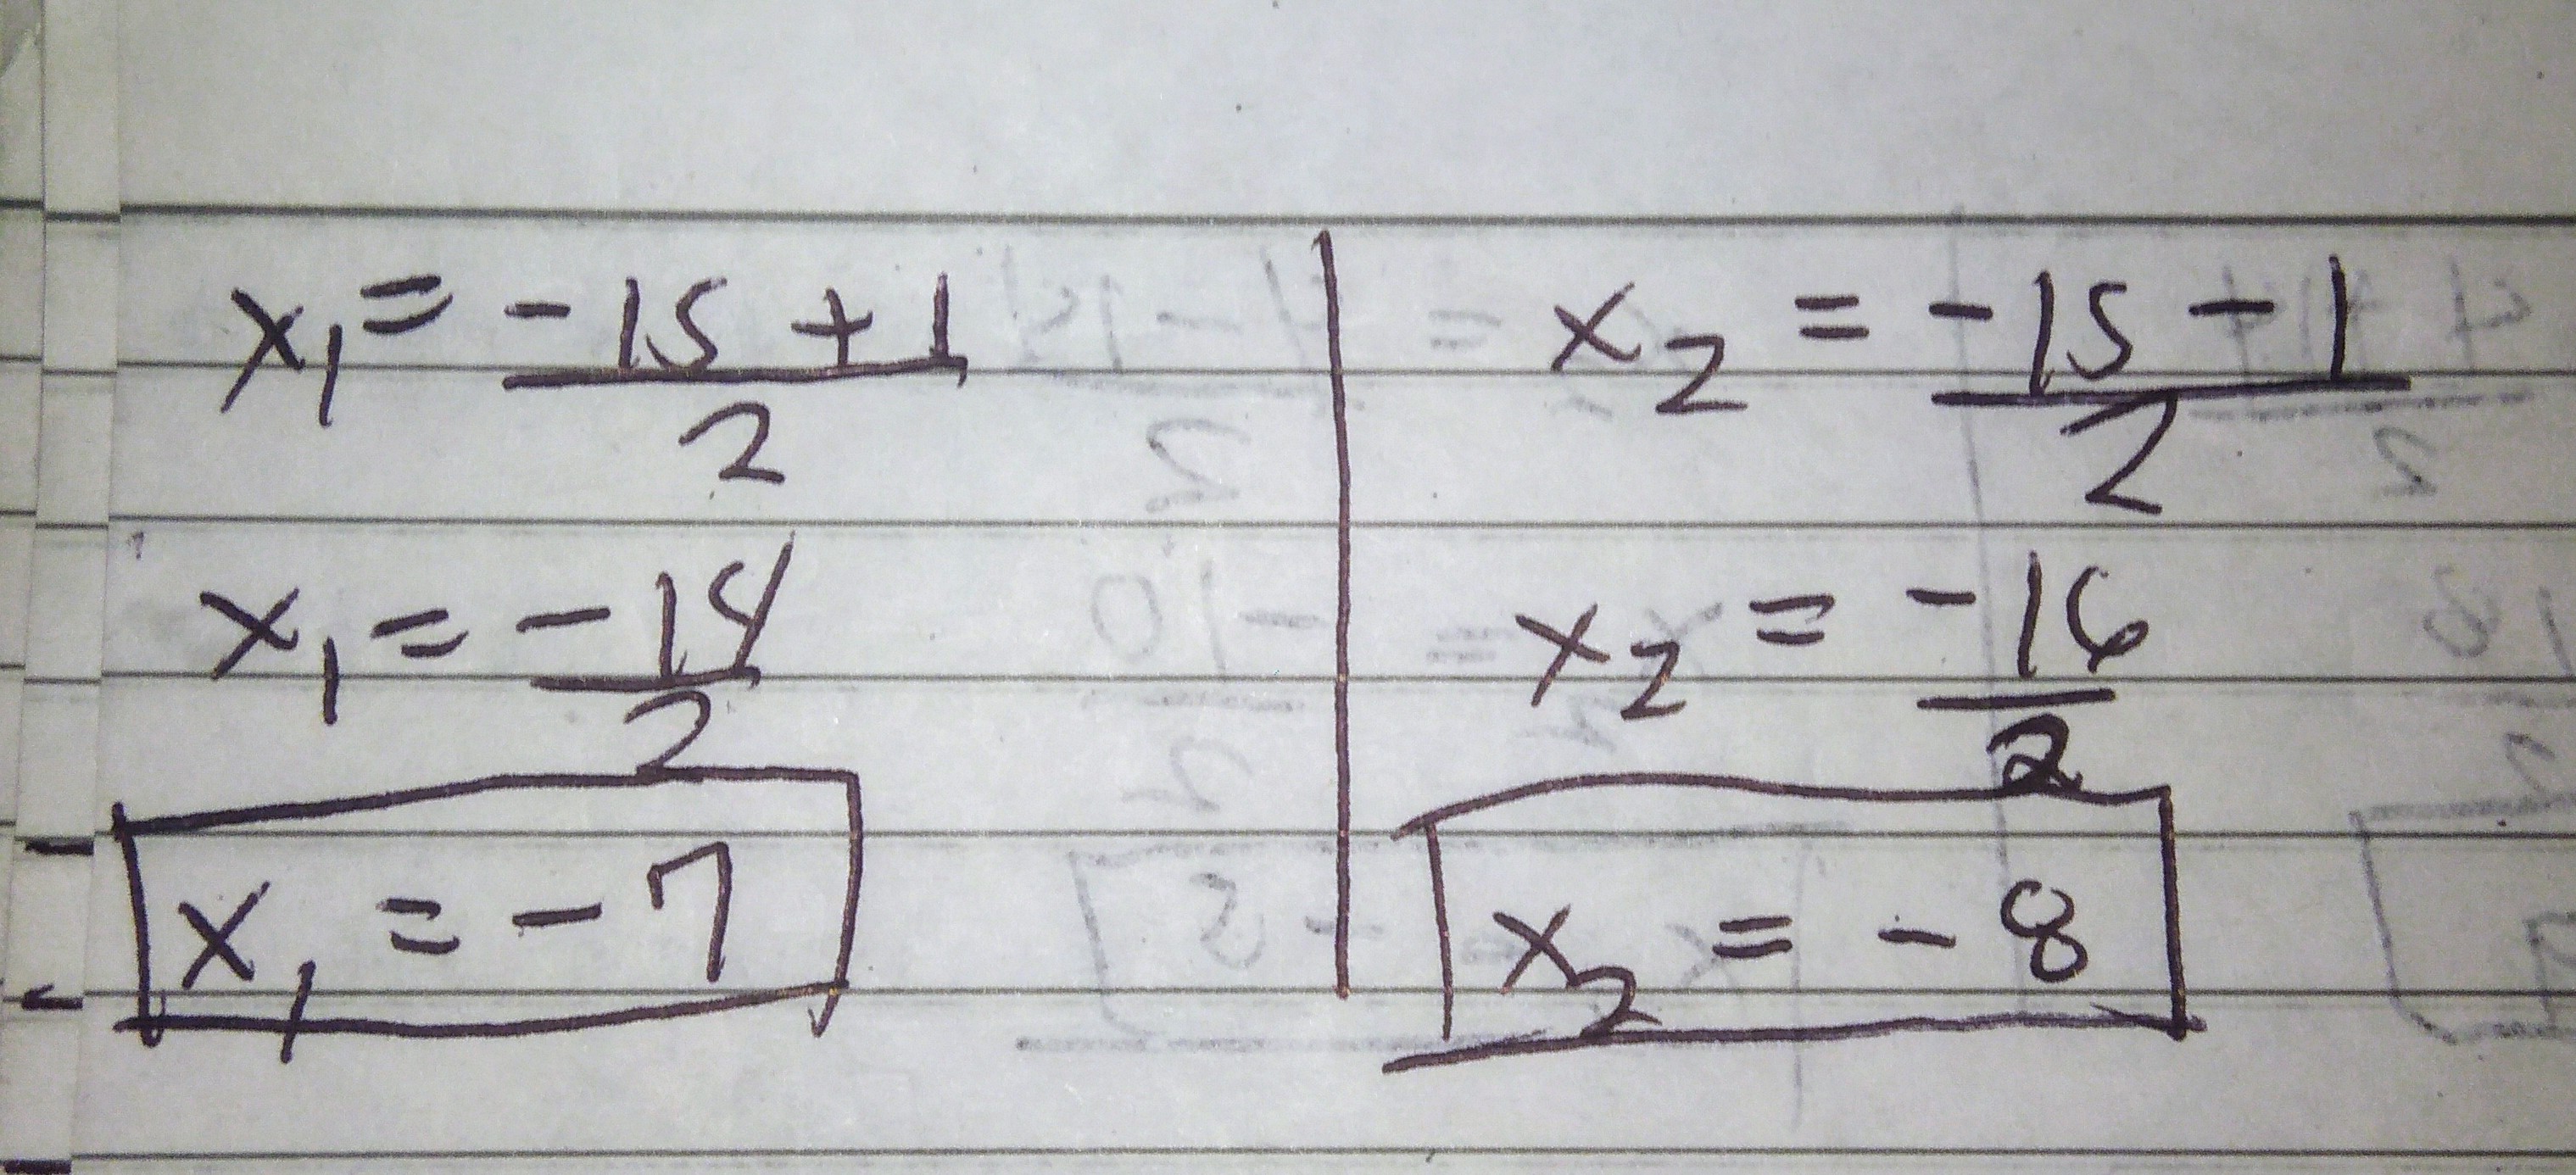 x₁ = -15 + 1
2
x₁ = -14
2
x₁ = -7
x₂ = -15 - 1
2
x₂ = -16
2
x₂ = -8